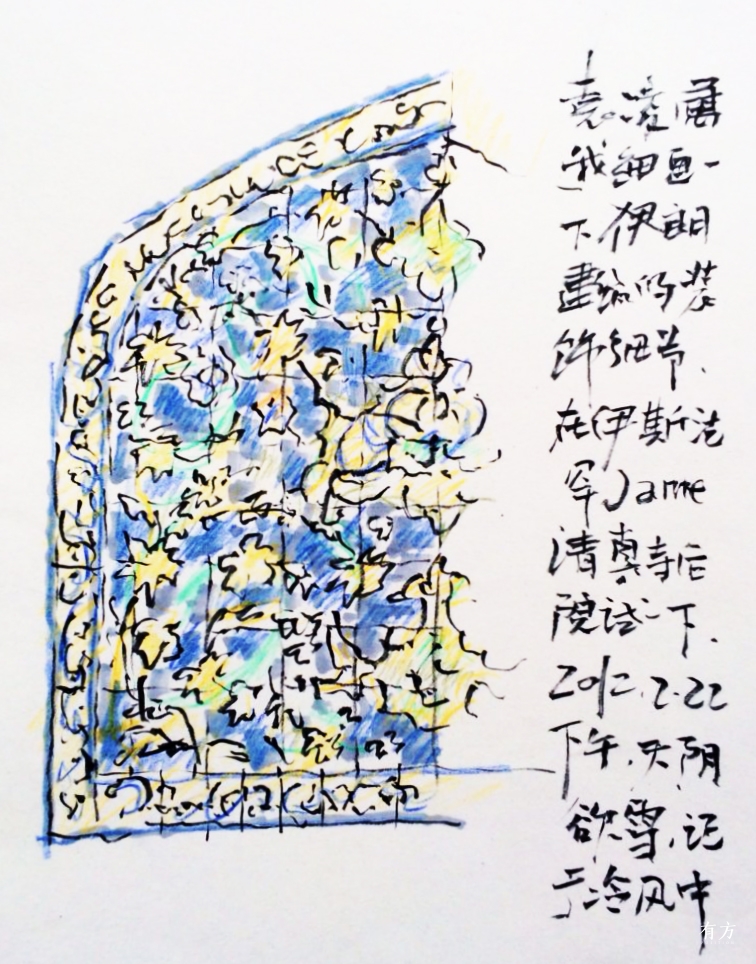 袁凌属
我细画一
下伊朗
建筑的装
饰细节、
在伊斯法
罕Jame
清真寺后
院试一下.
2012.2.22
下午.天阴
欲雪.记
于冷风中
有方